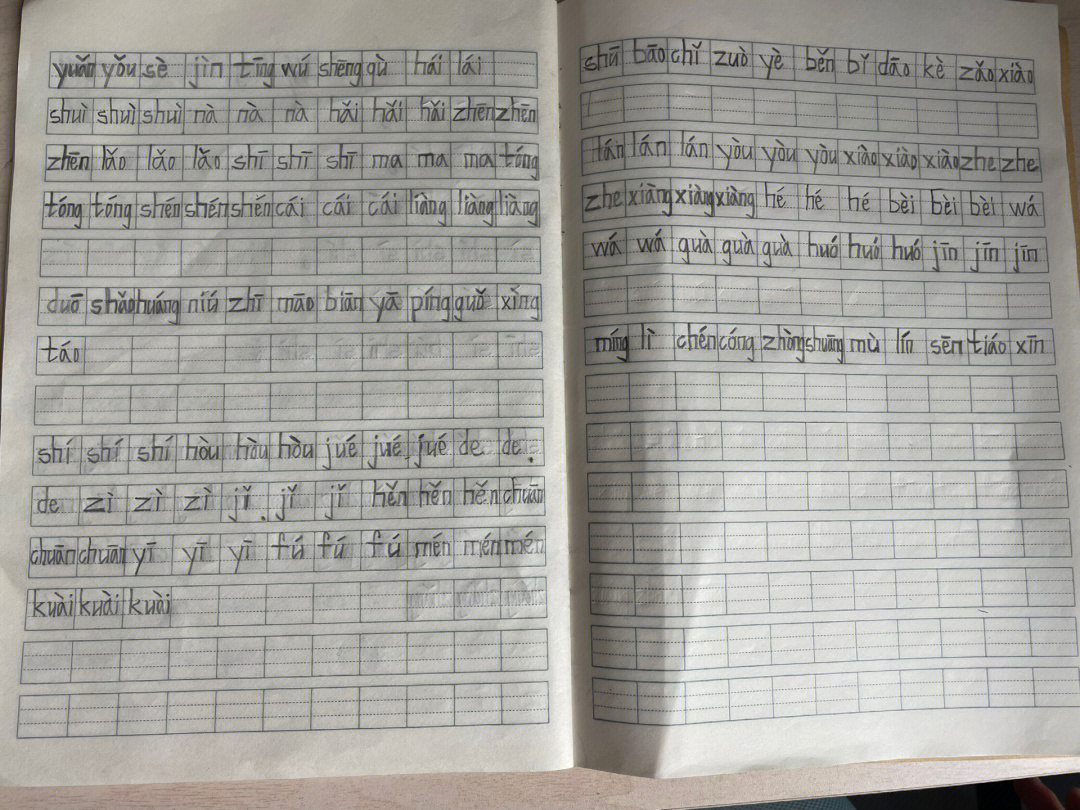 yuǎn yǒu sè jìn tīng wú shēng qù hái lái
shuì shuì shuì nà nà nà hǎi hǎi hǎi zhēn zhēn
zhēn lǎo lǎo lǎo shī shī shī ma ma ma tóng
tóng tóng shén shén shén cái cái cái liàng liàng liàng
duō shǎo huáng niú zhī māo biān yā píng guǒ xìng
táo
shí shí shí hòu hòu hòu jué jué jué de de
de zì zì zì jǐ jǐ jǐ hěn hěn hěn chuān
chuān chuān yī yī yī fú fú fú mén mén mén
kuài kuài kuài
shū bāo chǐ zuò yè běn bǐ dāo kè zǎo xiào
lán lán yòu yòu yòu xiào xiào xiào zhe zhe
zhe xiàng xiàng xiàng hé hé hé bèi bèi bèi wá
wá wá guà guà guà huó huó huó jīn jīn jīn
míng lì chén cóng zhòng shuāng mù lín sēn tiáo xīn